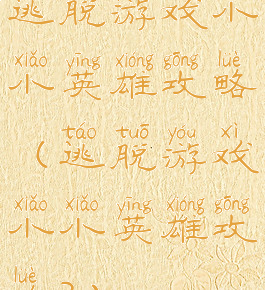 逃脱游戏小
xiǎo yīng xióng gōng lüè
小英雄攻略
táo tuō yóu xì
（逃脱游戏
xiǎo xiǎo yīng xióng gōng
小小英雄攻
lüè